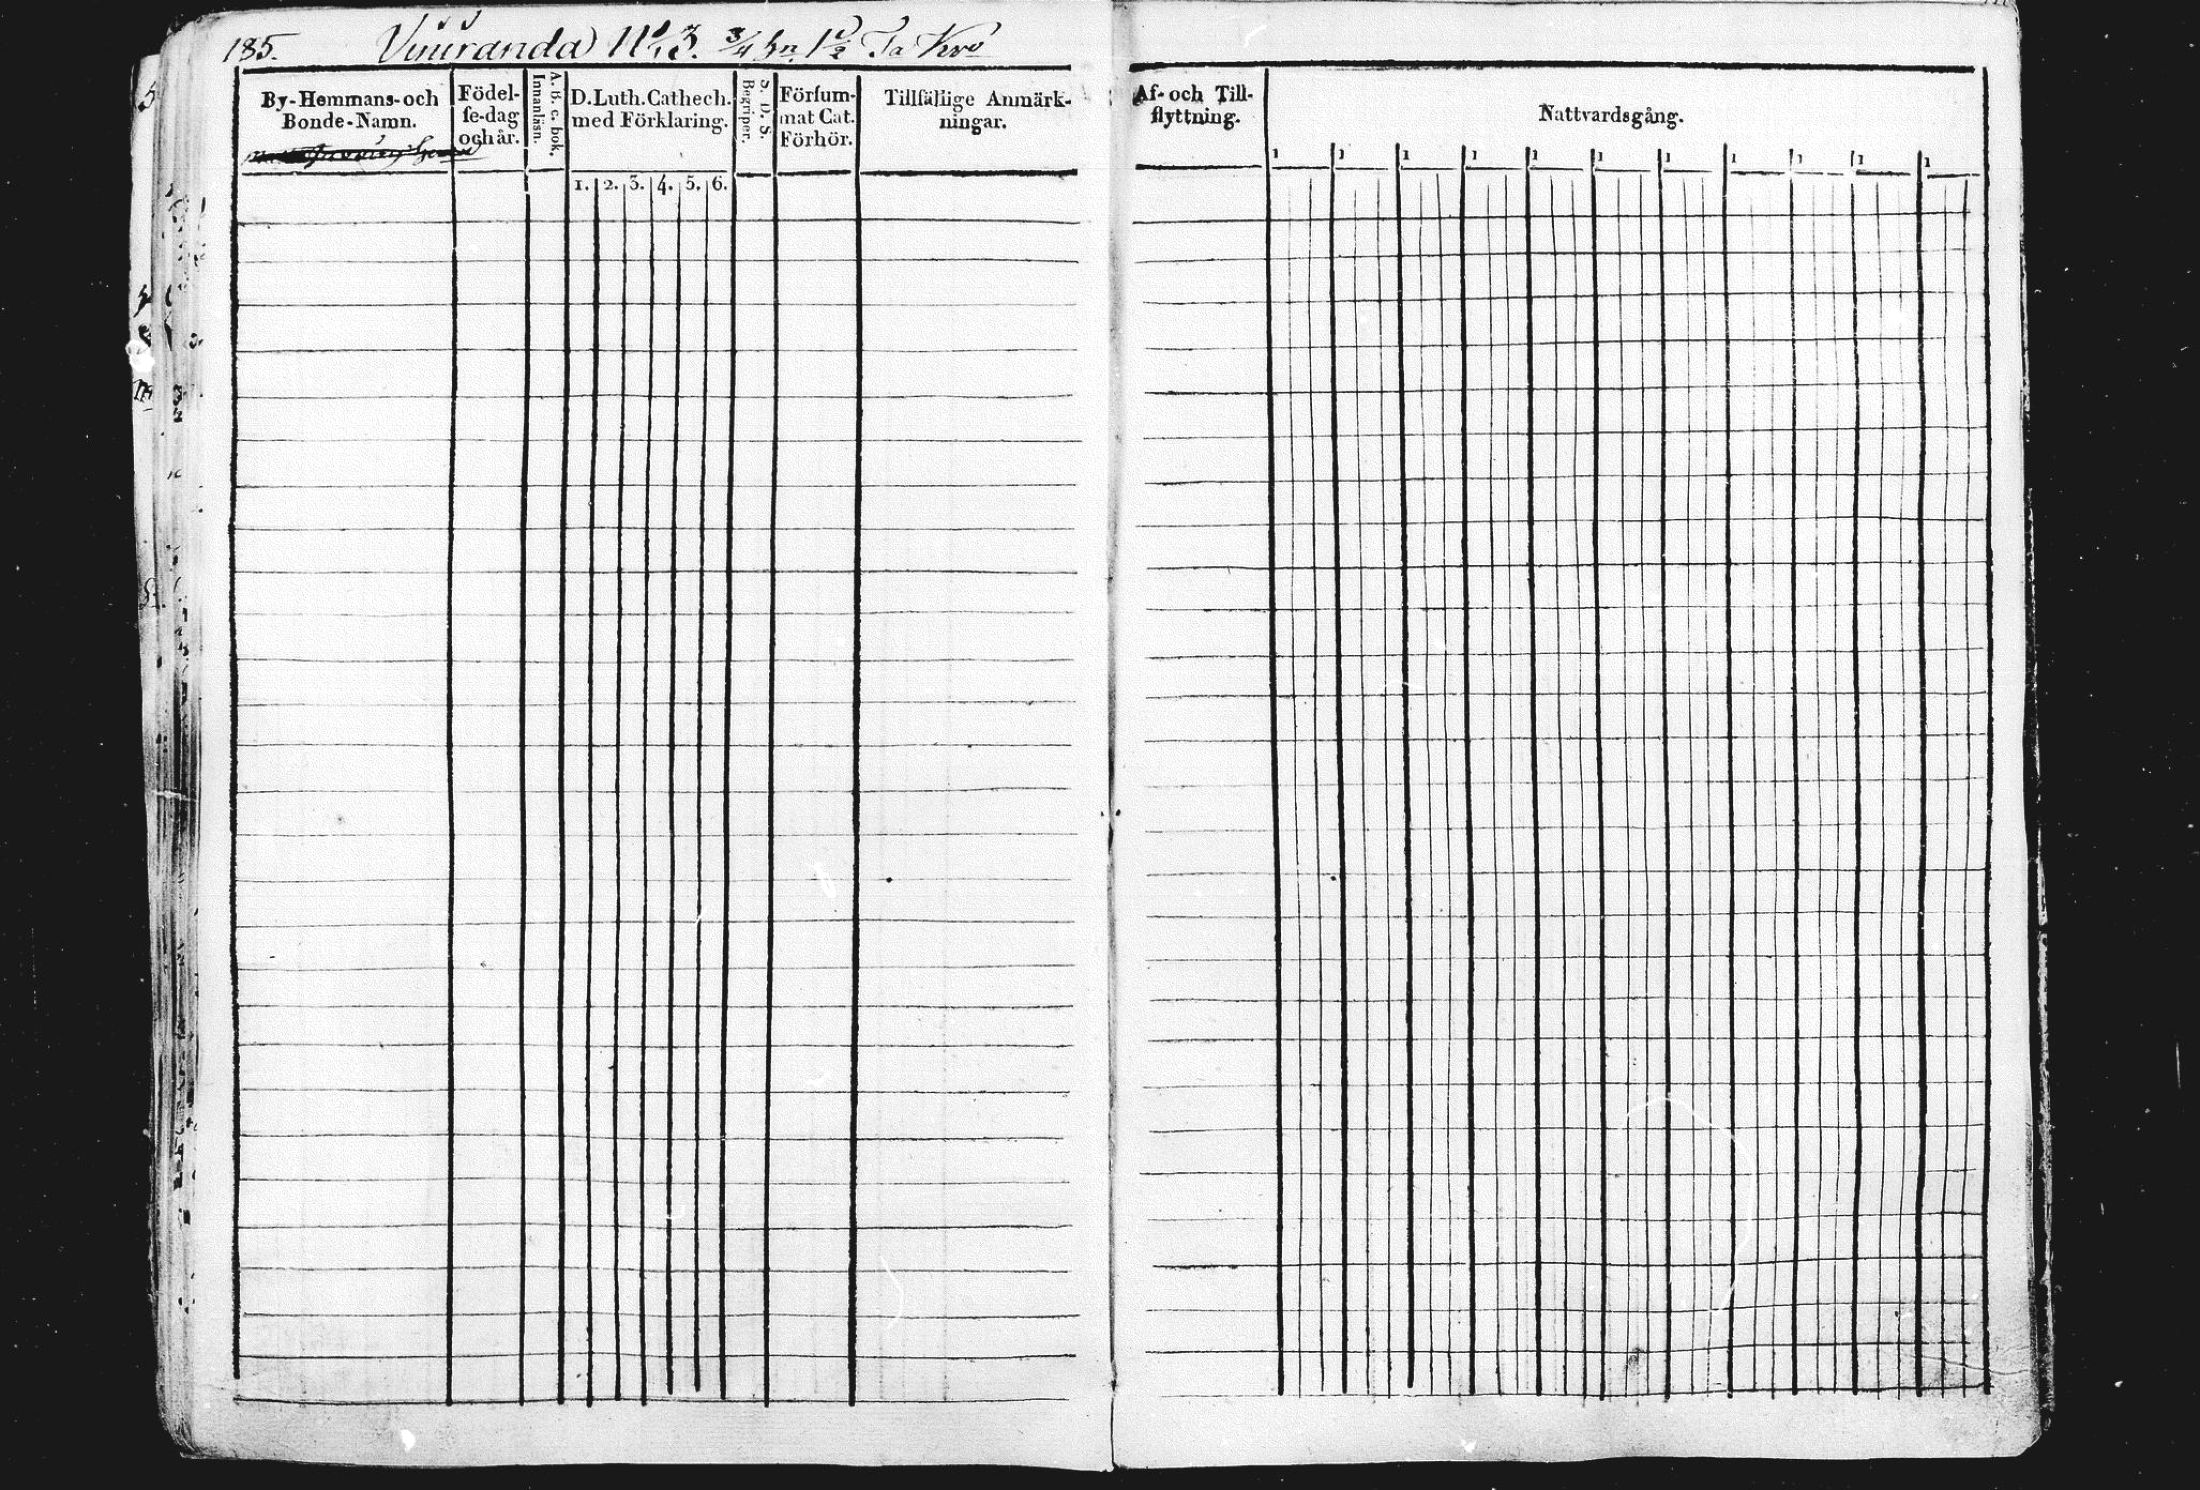 185. Vuuranda N:o 3. 3/4 hn. 1 1/2 Ta Kro
By-Hemmans-och
Bonde-Namn.
Födel-
se-dag
och år.
A. B. C. bok.
Innanläsn.
D. Luth. Cathech.
med Förklaring.
1. 2. 3. 4. 5. 6.
S. D. S.
Begriper.
Försum-
mat Cat.
Förhör.
Tillfällige Anmärk-
ningar.
Af- och Till-
flyttning.
Nattvardsgång.
1 1 1 1 1 1 1 1 1 1 1